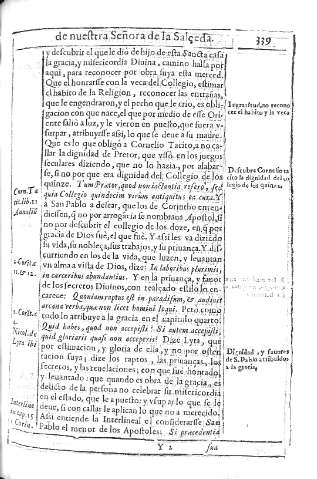 de nuestra Señora de la Salceda. 339
y descubrir el que le dio de hijo de esta Santa casa
la gracia, y misericordia Diuina, camino hasta por
aqui, para reconocer por obra suya esta merced.
Que el honrarsse con la veca del Collegio, estimar
el habito de la Religion, reconocer las entrañas,
que le engendraron, y el pecho que le crio, es obli-
gacion con que nace, el que por medio de esse Ori-
ente saliò a luz, y le vieron en puesto, que fuera v-
surpar, atribuyrsse assi, lo que se deue a su madre.
Que es lo que obligó a Cornelio Tacito, a no ca-
llar la dignidad de Pretor, que vsó en los juegos
seculares diziendo, que no lo hazia, por alabar-
se, si no por que era dignidad del Collegio de los
quinze. Tum Prator, quod non iactentia refero, sed
quia Collegio quindecim virum antiquitus ea cura. Y
a San Pablo a desear, que los de Corintho enten-
diessen, q̃ no por arrogãcia se nombraua Apostol, si
no por descubrir el collegio de los doze, en, q̃ por
gracia de Dios fuè, el que fuè. Y assi les va diziẽdo
su vida, su nobleça, sus trabajos, y su priuança. Y dis-
curriendo en los de vida, que luzen, y leuantan
vn alma a vista de Dios, dize: In laboribus plurimis,
in carceribus abundantius. Y en la priuança, y fauor
de los secretos Diuinos, con realçado estilo lo en-
carece: Quoniam raptus est in paradisum, & audiuit
arcana verba, quæ non licet homini loqui. Pero como
todo lo atribuye a la gracia en el capitulo quarto:
Quid habes, quod non accepisti? Si autem accepisti,
quid gloriaris quasi non acceperis? Dize Lyra, que
por estimacion, y gloria de ella, y no por osten-
tacion suya, dize los raptos, las priuanças, los
secretos, y las reuelaciones; con que fue honrado,
y leuantado: que quando es obra de la gracia, es
delicto de la persona no celebrar su misericordia
en el estado, que le a puesto: y vsurpar lo que se le
deue, si con callar le aplican lo que no a merecido.
Assi entiende la Interlineal el considerarsse San
Pablo el menor de los Apostoles: Si præcedentia
Y 2 sua
Corn. Ta
Annaliũ
2. Corint.
11. & 12.
1. Corint.
4.
Nicol. de
Lyra ibi
Interlinea
in cap. 15
1. Corin.
Ingratitud, no recono
cer el habito y la veca
Descubre Cornelio ta
cito la dignidad del co
legio de los quinze
Dignidad, y fauores
de S. Pablo atribuidos
a la gracia,